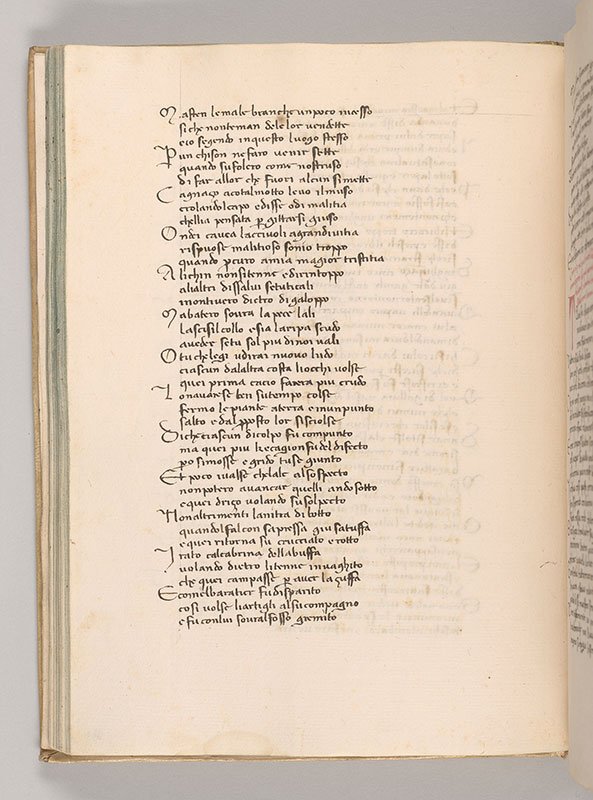 M asten le male branche un poco in cesso
si che non teman dele lor vendette
e io segendo in questo luogo stesso
P un chi son ne faro venir sette
quando sufolero come nostruso
di far allor che fuori alcun si mette
C agnaço a cotal motto levo il muso
crolando l capo e disse odi malitia
chellia pensata p gittarsi giuso
O ndei cavea laccivoli a grandivitia
rispuose malitioso sonio troppo
quando pcuro a mia magior tristitia
A lichin non si tenne e di rintoppo
ali altri disse a lui se tu ti cali
i non ti verro dietro di galoppo
M a batero sovra la pece lali
lascisi l collo e sia la ripa scudo
a veder se tu sol piu di noi vali
O tu che legi udirai nuovo ludo
ciascun dalaltra costa li occhi volse
quei prima cacio fare era piu crudo
L o navarese ben suo tempo colse
fermo le piante a terra e in un punto
salto e dal pposto lor si sciolse
D i che ciascun di colpo fu compunto
ma quei piu che cagion fu del difecto
po si mosse e grido tu se giunto
E t poco i valse che lale al sospecto
non potero avançar quelli ando sotto
e quei driço volando suso l pecto
N on altrimenti lanitra di botto
quando l falcon sapressa giu satuffa
e quei ritorna su crucciato e rotto
I rato calcabrina della buffa
volando dietro li tenne invaghito
che quei campasse p aver la çuffa
E come l baratier fu disparito
cosi volse li artigli al suo compagno
e fu con lui sovra l fosso gremito